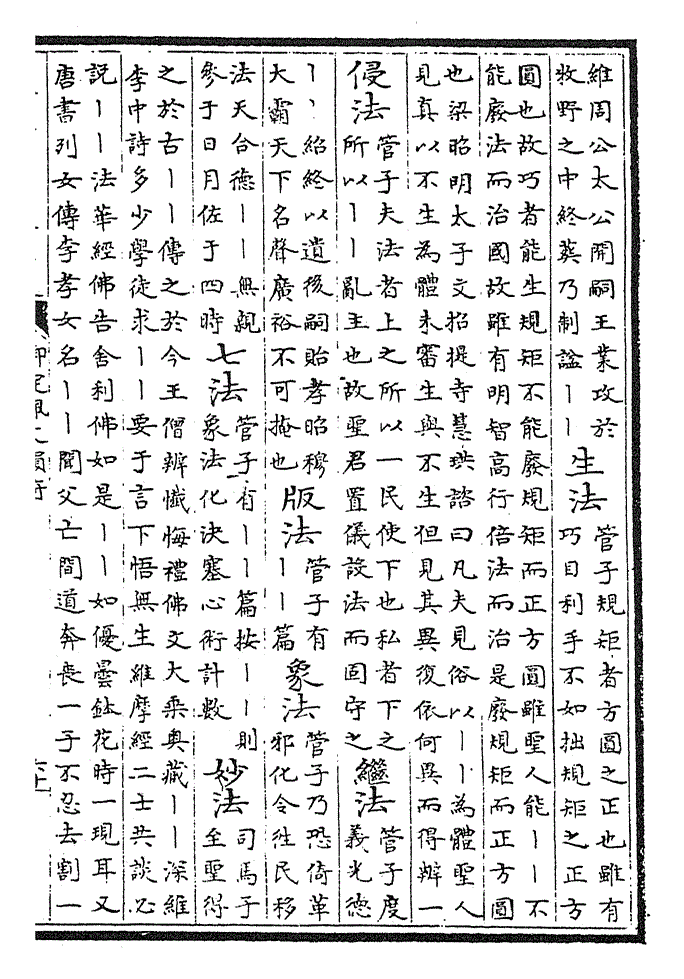 維周公太公開嗣王業攻於
牧野之中終葬乃制諡丨丨
生法
管子規矩者方圓之正也雖有
巧目利手不如拙規矩之正方
圓也故巧者能生規矩不能廢規矩而正方圓雖聖人能丨丨不
能廢法而治國故雖有明智高行倍法而治是廢規矩而正方圓
也梁昭明太子文招提寺慧琪諮曰凡夫見俗以丨丨為體聖人
見真以不生為體未審生與不生但見其異復依何異而得辦一
侵法
管子夫法者上之所以一民使下也私者下之
所以丨丨亂主也故聖君置儀設法而固守之
繼法
管子度
義光德
丨丨紹終以遺後嗣貽孝昭穆
大霸天下名聲廣裕不可掩也
版法
管子有
丨丨篇
象法
管子乃恐倚革
邪化令往民移
法天合德丨丨無親
參于日月佐于四時
七法
管子有丨丨篇按丨丨則
象法化決塞心術計數
妙法
司馬子
至聖得
之於古丨丨傳之於今王僧辨懺悔禮佛文大乘奥藏丨丨深維
李中詩多少學徒求丨丨要于言下悟無生維摩經二士共談必
説丨丨法華經佛告舍利佛如是丨丨如優曇鉢花時一現耳又
唐書列女傳李孝女名丨丨聞父亡間道奔喪一子不忍去割一